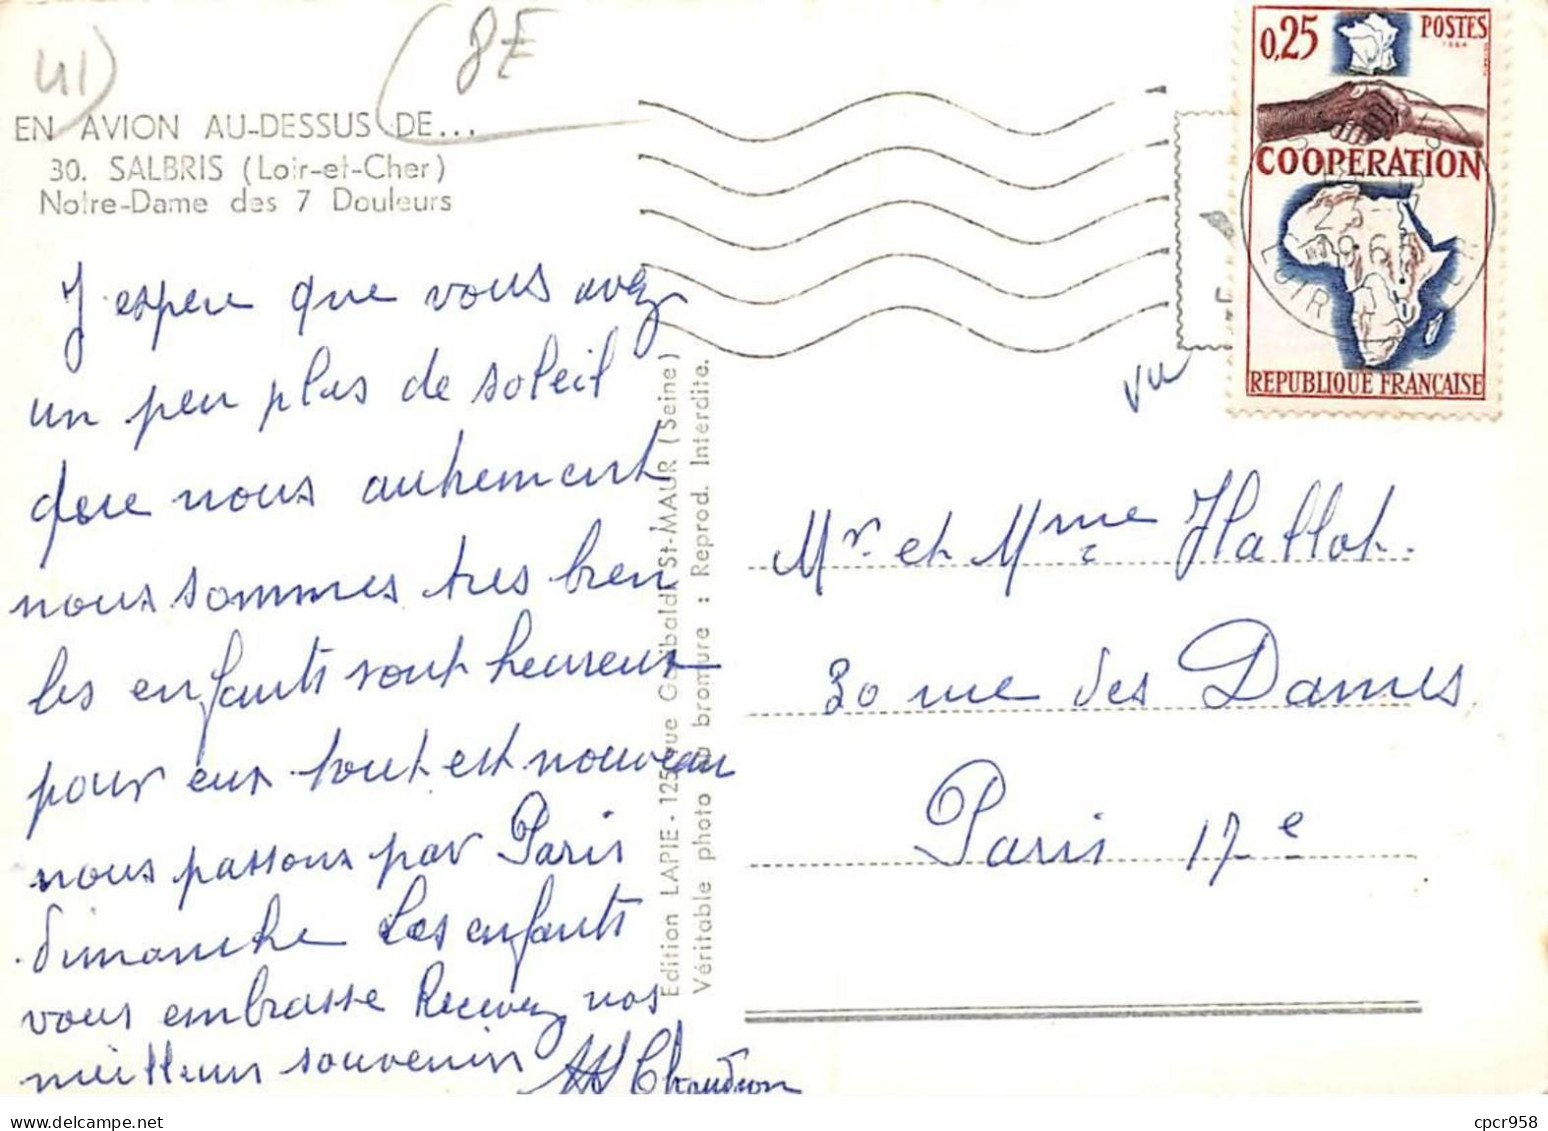 41)
8E
EN AVION AU-DESSUS DE...
30. SALBRIS (Loir-et-Cher)
Notre-Dame des 7 Douleurs
J espere que vous avez
un peu plus de soleil
que nous autrement
nous sommes tres bien
les enfants sont heureux
pour eux tout est nouveau
nous passons par Paris
dimanche Les enfants
vous embrasse Recevez nos
meilleurs souvenirs
Chaudron
Edition LAPIE - 125, rue Garibaldi, St-MAUR (Seine)
Véritable photo au bromure : Reprod. Interdite.
0,25 POSTES
1964
COOPERATION
REPUBLIQUE FRANÇAISE
vu
Mr. et Mme Hallot.
30 rue des Dames
Paris 17e
cpcr958